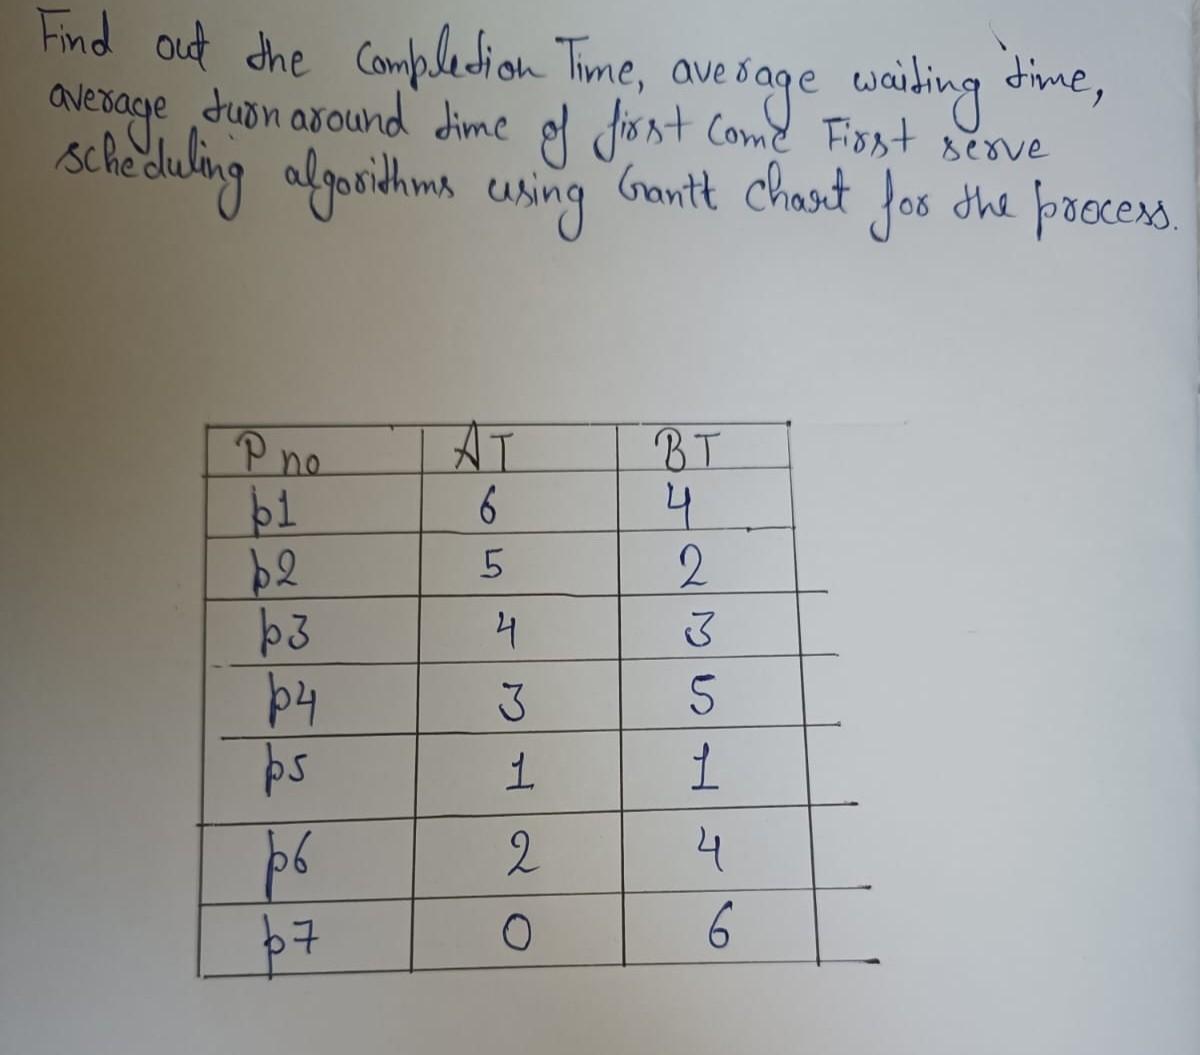 Find out the Completion Time, average waiting time,
average turnaround time of first Come First serve
scheduling algorithms using Gantt Chart for the process.
P no AT BT
p1 6 4
p2 5 2
p3 4 3
p4 3 5
p5 1 1
p6 2 4
p7 0 6